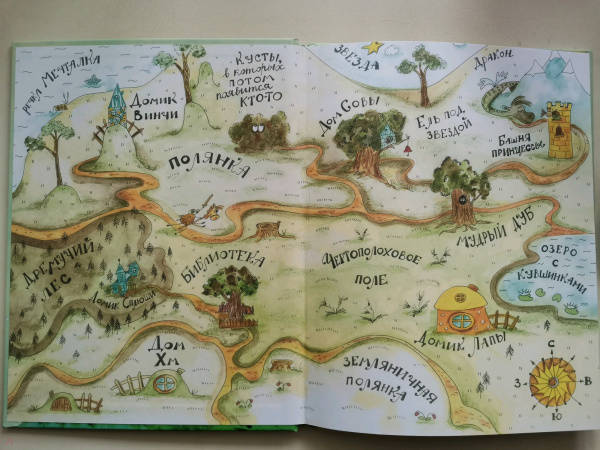 РЕЧКА МЕЧТАЛКА
ДОМИК
ВИНЧИ
КУСТЫ,
в которых
ПОТОМ
ПОЯВИТСЯ
КТО-ТО
ПОЛЯНКА
ЗВЕЗДА
ДРАКОН
ДОМ СОВЫ
ЕЛЬ ПОД
ЗВЕЗДОЙ
БАШНЯ
ПРИНЦЕССЫ
МУДРЫЙ ДУБ
ДРЕМУЧИЙ
ЛЕС
ДОМИК
БИБЛИОТЕКА
ЧЕРТОПОЛОХОВОЕ
ПОЛЕ
ОЗЕРО
С
КУВШИНКАМИ
ДОМ
ХМ
ДОМИК ЛАПЫ
ЗЕМЛЯНИЧНАЯ
ПОЛЯНКА
С
З
В
Ю